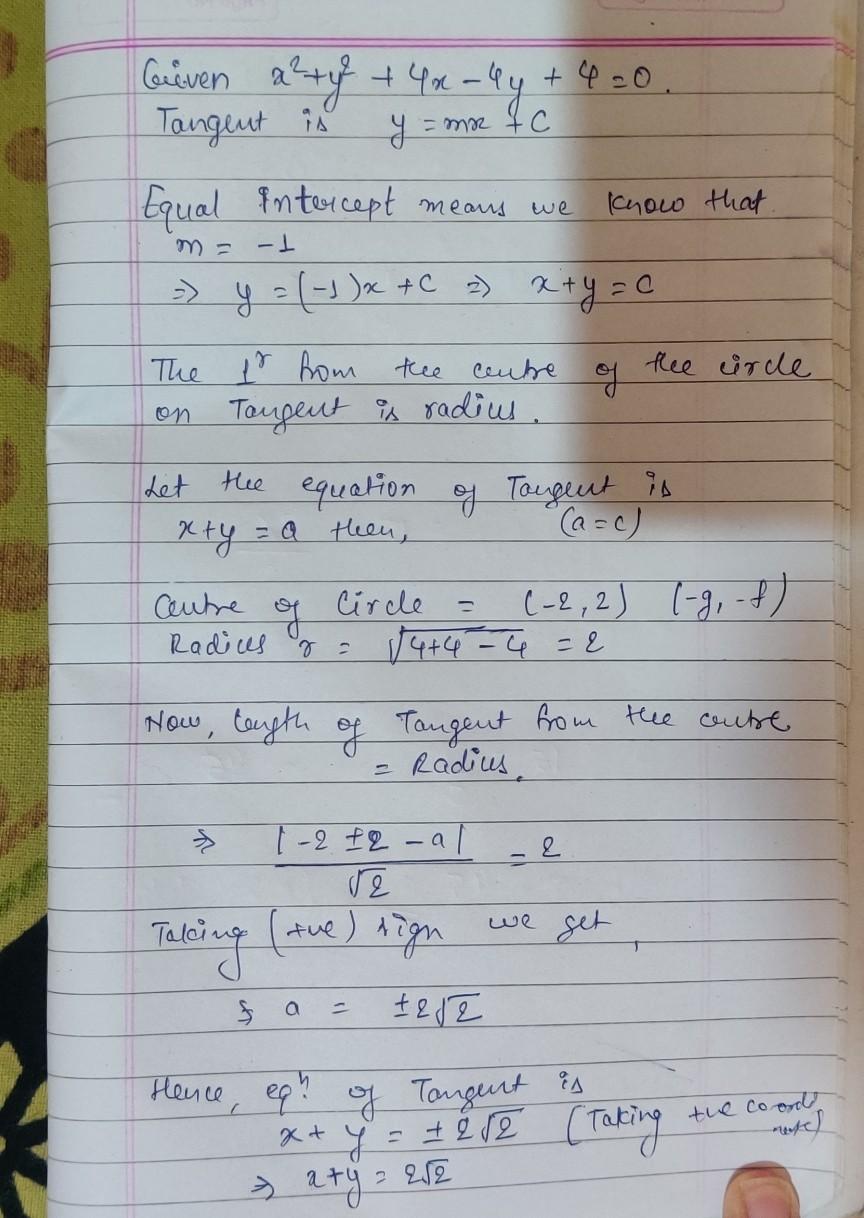 Given x²+y² + 4x - 4y + 4 = 0.
Tangent is y = mx + C
Equal Intercept means we know that
m = -1
⇒ y = (-1)x + C ⇒ x+y = C
The ⊥r from the centre of the circle
on Tangent is radius.
Let the equation of Tangent is
x+y = a then, (a = c)
Centre of Circle = (-2, 2) (-g, -f)
Radius r = √4+4-4 = 2
Now, length of Tangent from the centre
= Radius.
⇒ |-2 ±2 - a| / √2 = 2
Taking (+ve) sign we get,
a = ±2√2
Hence, eqn. of Tangent is
x + y = ±2√2 (Taking +ve coordinate)
⇒ x+y = 2√2